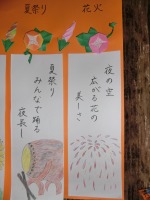 花火
夜の空
広がる花の
美しさ
夏祭り
夏祭り
みんなで踊る
夜長し